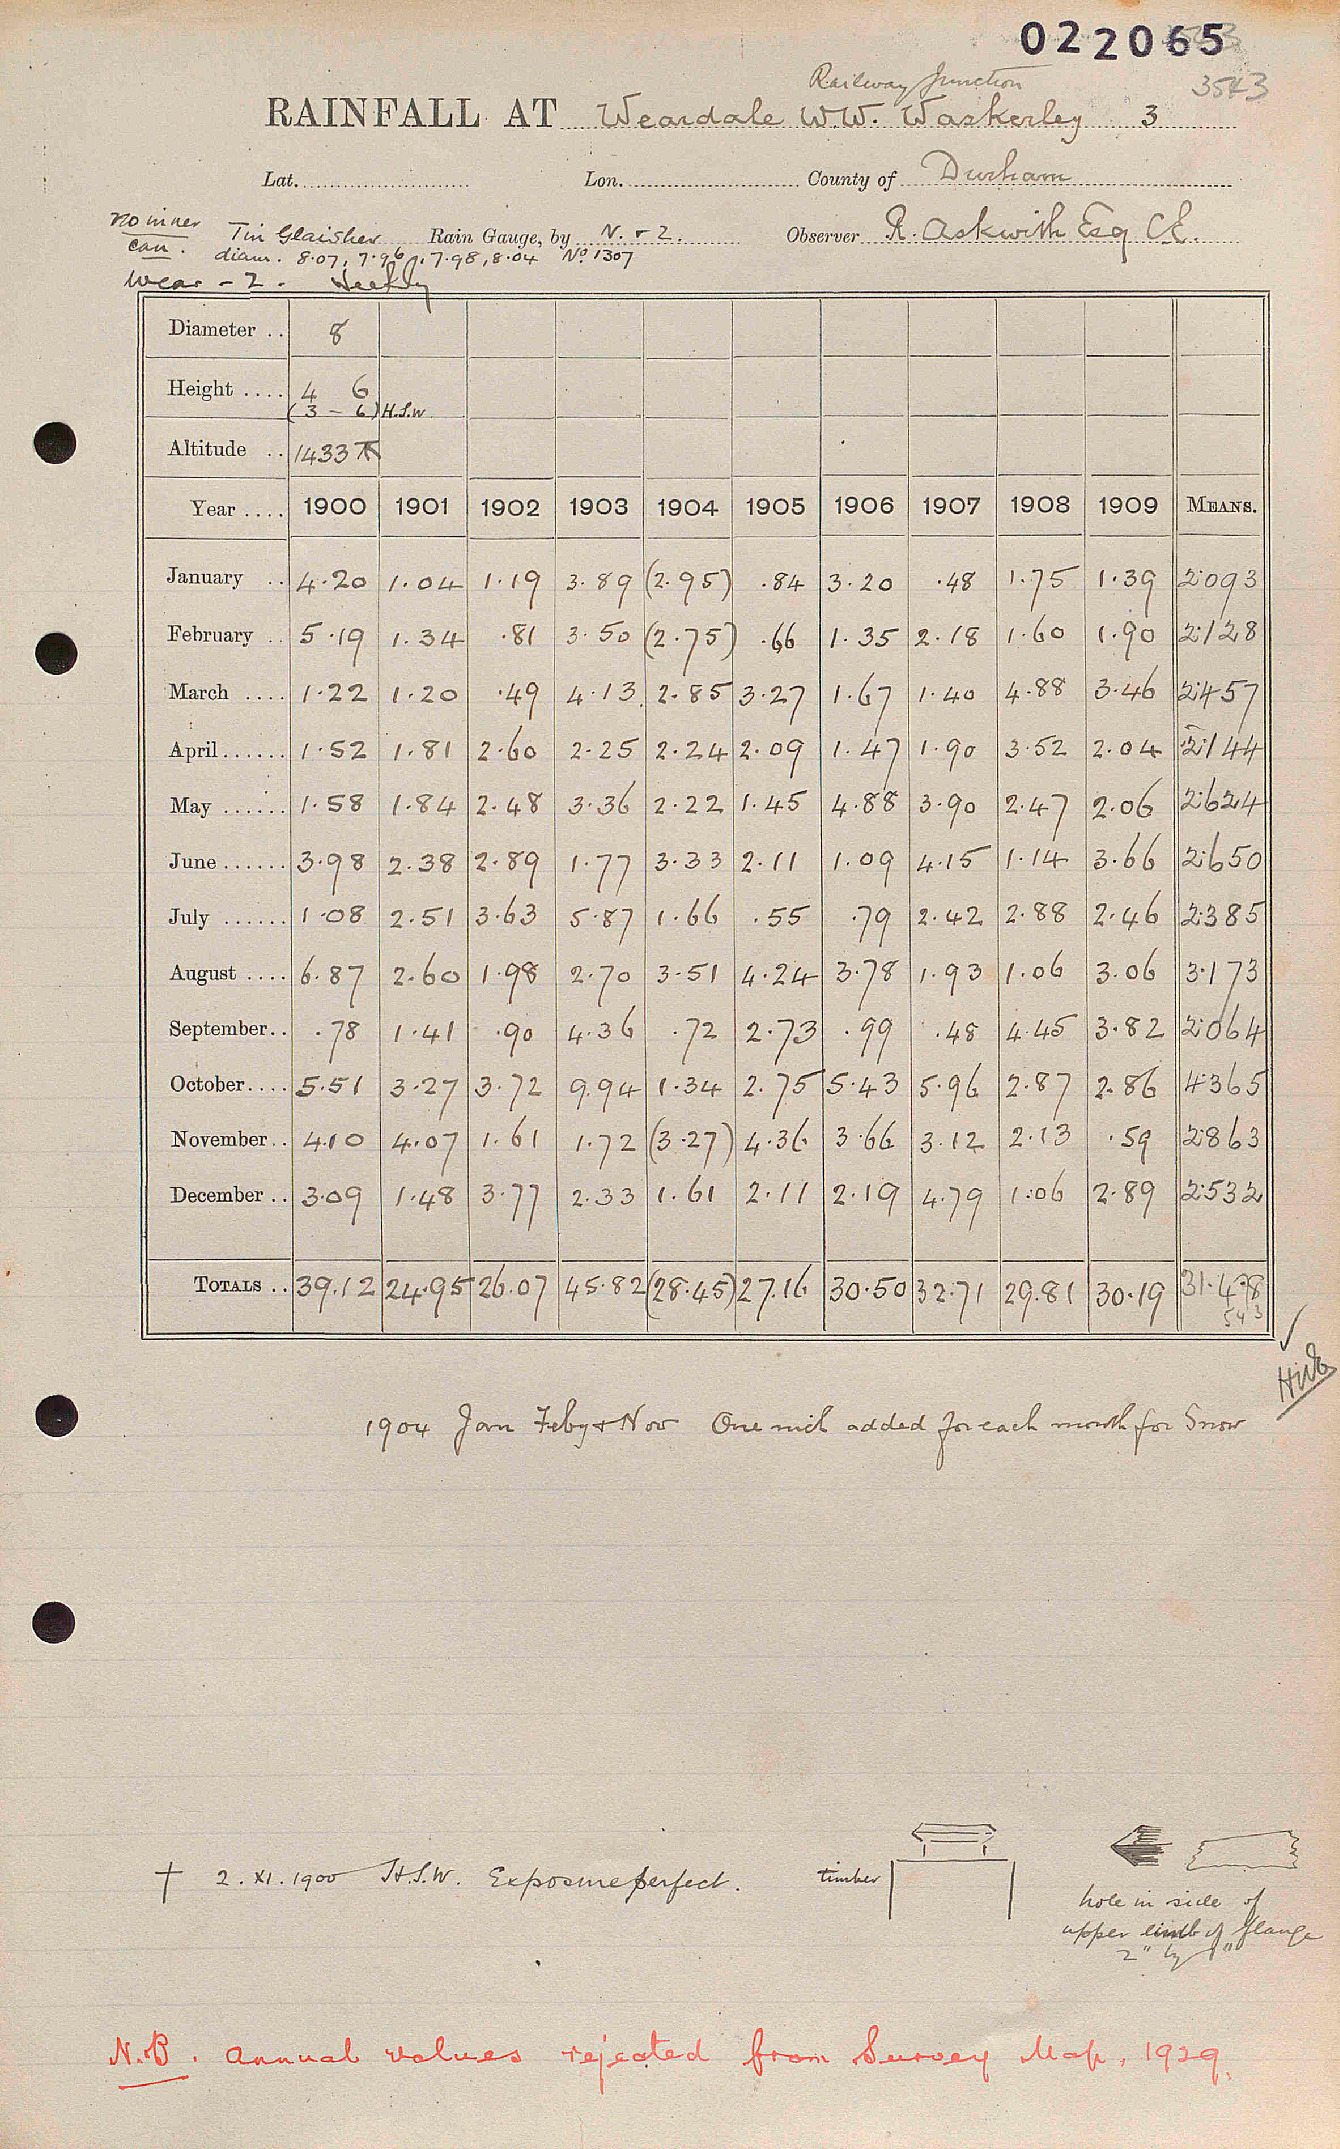 022065
Railway Junction 3543
RAINFALL AT Weardale W.W. Waskerley 3
Lat. Lon. County of Durham
No inner can. Tin Glaisher Rain Gauge, by N. & Z. Observer R. Askwith Esq C.E.
diam. 8.07, 7.96, 7.98, 8.04 No 1307
Wear - 2. Weekly
Diameter .. 8
Height .... 4 6
(3 - 6) H.S.W
Altitude .. 1433
Year .... 1900 1901 1902 1903 1904 1905 1906 1907 1908 1909 MEANS.
January .. 4.20 1.04 1.19 3.89 (2.95) .84 3.20 .48 1.75 1.39 2.093
February .. 5.19 1.34 .81 3.50 (2.75) .66 1.35 2.18 1.60 1.90 2.128
March .... 1.22 1.20 .49 4.13 2.85 3.27 1.67 1.40 4.88 3.46 2.457
April...... 1.52 1.81 2.60 2.25 2.24 2.09 1.47 1.90 3.52 2.04 2.144
May ...... 1.58 1.84 2.48 3.36 2.22 1.45 4.88 3.90 2.47 2.06 2.624
June ...... 3.98 2.38 2.89 1.77 3.33 2.11 1.09 4.15 1.14 3.66 2.650
July ...... 1.08 2.51 3.63 5.87 1.66 .55 .79 2.42 2.88 2.46 2.385
August .... 6.87 2.60 1.98 2.70 3.51 4.24 3.78 1.93 1.06 3.06 3.173
September.. .78 1.41 .90 4.36 .72 2.73 .99 .48 4.45 3.82 2.064
October.... 5.51 3.27 3.72 9.94 1.34 2.75 5.43 5.96 2.87 2.86 4.365
November.. 4.10 4.07 1.61 1.72 (3.27) 4.36 3.66 3.12 2.13 .59 2.863
December .. 3.09 1.48 3.77 2.33 1.61 2.11 2.19 4.79 1.06 2.89 2.532
TOTALS .. 39.12 24.95 26.07 45.82 (28.45) 27.16 30.50 32.71 29.81 30.19 31.478
543
1904 Jan Feby & Nov One inch added for each month for Snow
† 2.XI.1900 H.S.W. Exposure perfect.
timber
hole in side of
upper limb of flange
2" by 1"
N.B. Annual values rejected from Survey Map, 1929.